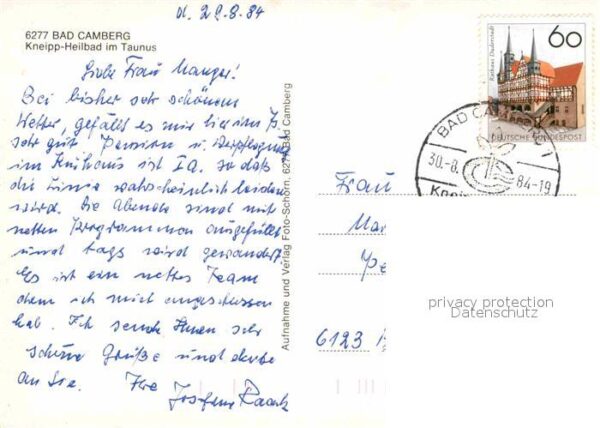 d. 29.8.84
6277 BAD CAMBERG
Kneipp-Heilbad im Taunus
Liebe Frau Manger!
Bei bisher sehr schönem
Wetter, gefällt es mir hier im
sehr gut. Pension u. Verpflegung
im Kurhaus ist Ia. so daß
die Linie wahrscheinlich leiden
wird. Die Abende sind mit
netten Programmen ausgefüllt
und tags wird gewandert.
Es ist ein nettes Team
dem ich mich angeschlossen
hab. Ich sende Ihnen sehr
schöne Grüße und denke
an Sie. Ihre
Aufnahme und Verlag Foto-Schorn, 6277 Bad Camberg
Rathaus Duderstadt
60
DEUTSCHE BUNDESPOST
BAD CAMBERG
30.-8. 84-19
Kneip
Frau
Ma
Pe
6123
privacy protection
Datenschutz